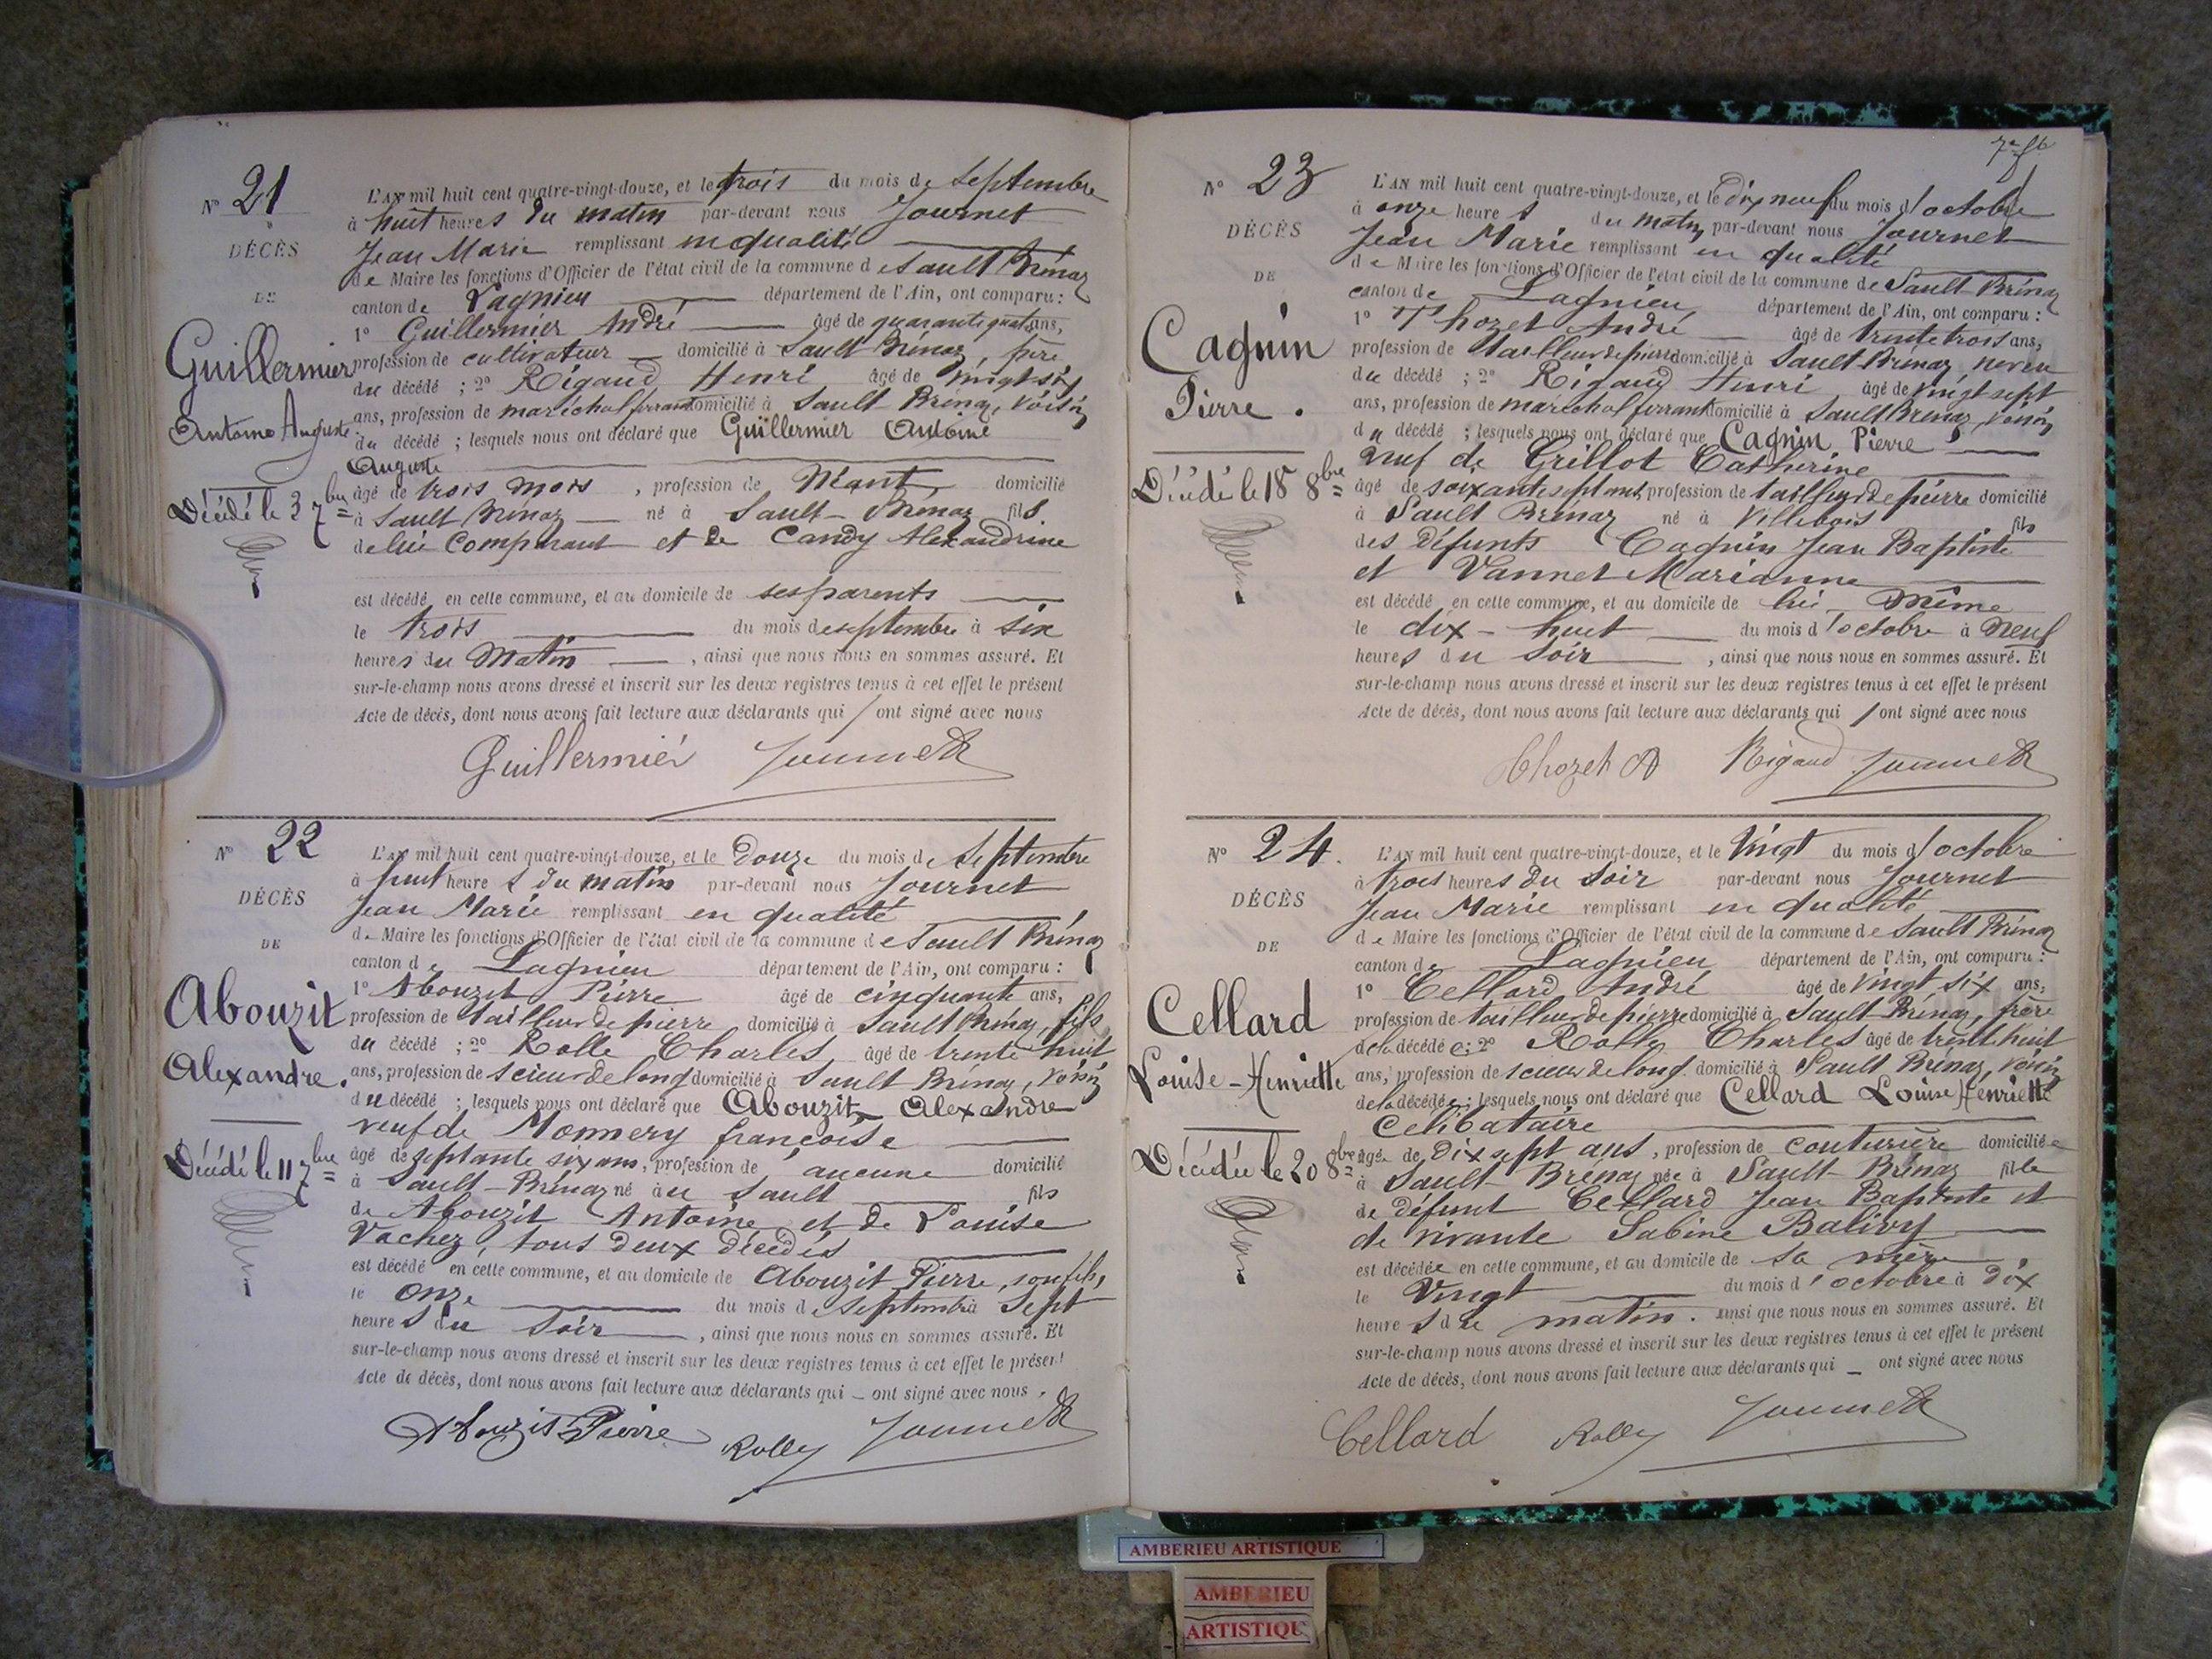 N° 21
DÉCÈS
DE
Guillermier
Antoine Auguste
Décédé le 3 7bre
L'AN mil huit cent quatre-vingt-douze, et le trois du mois de Septembre
à huit heures du matin par-devant nous Journet
Jean Marie remplissant en qualité
de Maire les fonctions d'Officier de l'état civil de la commune de Sault Brénaz
canton de Lagnieu département de l'Ain, ont comparu :
1° Guillermier André âgé de quarante quatre ans,
profession de cultivateur domicilié à Sault Brénaz, père
du décédé ; 2° Rigaud Henri âgé de vingt six
ans, profession de maréchal ferrant domicilié à Sault Brénaz, voisin
du décédé ; lesquels nous ont déclaré que Guillermier Antoine
Auguste
âgé de trois mois, profession de Néant domicilié
à Sault Brénaz né à Sault-Brénaz fils
de lui Comparant et de Candy Alexandrine
est décédé en cette commune, et au domicile de ses parents
le trois du mois de septembre à six
heures du Matin, ainsi que nous nous en sommes assuré. Et
sur-le-champ nous avons dressé et inscrit sur les deux registres tenus à cet effet le présent
Acte de décès, dont nous avons fait lecture aux déclarants qui / ont signé avec nous
Guillermier Journet
N° 22
DÉCÈS
DE
Abouzit
Alexandre.
Décédé le 11 7bre
L'AN mil huit cent quatre-vingt-douze, et le Douze du mois de Septembre
à huit heures du matin par-devant nous Journet
Jean Marie remplissant en qualité
de Maire les fonctions d'Officier de l'état civil de la commune de Sault Brénaz
canton de Lagnieu département de l'Ain, ont comparu :
1° Abouzit Pierre âgé de cinquante ans,
profession de tailleur de pierre domicilié à Sault Brénaz, fils
du décédé ; 2° Rolle Charles âgé de trente huit
ans, profession de scieur de long domicilié à Sault Brénaz, voisin
du décédé ; lesquels nous ont déclaré que Abouzit Alexandre
veuf de Monnery françoise
âgé de septante six ans, profession de aucune domicilié
à Sault-Brénaz né au Sault fils
de Abouzit Antoine et de Louise
Vachez, tous deux décédés
est décédé en cette commune, et au domicile de Abouzit Pierre, son fils,
le onze du mois de Septembre à Sept
heures du Soir, ainsi que nous nous en sommes assuré. Et
sur-le-champ nous avons dressé et inscrit sur les deux registres tenus à cet effet le présent
Acte de décès, dont nous avons fait lecture aux déclarants qui - ont signé avec nous.
Abouzit Pierre Rolle Journet
N° 23
DÉCÈS
DE
Cagnin
Pierre.
Décédé le 18 8bre
L'AN mil huit cent quatre-vingt-douze, et le dix neuf du mois d'octobre
à onze heures du matin par-devant nous Journet
Jean Marie remplissant en qualité
de Maire les fonctions d'Officier de l'état civil de la commune de Sault-Brénaz
canton de Lagnieu département de l'Ain, ont comparu :
1° Thozet André âgé de trente trois ans,
profession de tailleur de pierre domicilié à Sault-Brénaz, neveu
du décédé ; 2° Rigaud Henri âgé de vingt sept
ans, profession de maréchal ferrant domicilié à Sault Brénaz, voisin
du décédé ; lesquels nous ont déclaré que Cagnin Pierre
veuf de Grillot Catherine
âgé de soixante sept ans, profession de tailleur de pierre domicilié
à Sault Brénaz né à Villebois fils
des défunts Cagnin Jean Baptiste
et Vannet Marianne
est décédé en cette commune, et au domicile de lui-Même
le dix-huit du mois d'octobre à Neuf
heures du Soir, ainsi que nous nous en sommes assuré. Et
sur-le-champ nous avons dressé et inscrit sur les deux registres tenus à cet effet le présent
Acte de décès, dont nous avons fait lecture aux déclarants qui / ont signé avec nous
Thozet A Rigaud Journet
N° 24.
DÉCÈS
DE
Cellard
Louise-Henriette
Décédée le 20 8bre
L'AN mil huit cent quatre-vingt-douze, et le Vingt du mois d'octobre
à trois heures du Soir par-devant nous Journet
Jean Marie remplissant en qualité
de Maire les fonctions d'Officier de l'état civil de la commune de Sault Brénaz
canton de Lagnieu département de l'Ain, ont comparu :
1° Cellard André âgé de Vingt six ans,
profession de tailleur de pierre domicilié à Sault-Brénaz, frère
de la décédée ; 2° Rolle Charles âgé de trente huit
ans, profession de scieur de long domicilié à Sault Brénaz, voisin
de la décédée ; lesquels nous ont déclaré que Cellard Louise Henriette
Célibataire
âgée de Dix sept ans, profession de couturière domiciliée
à Sault-Brénaz née à Sault-Brénaz fille
de défunt Cellard Jean Baptiste et
de vivante Sabine Balivy
est décédée en cette commune, et au domicile de sa mère,
le Vingt du mois d'octobre à Dix
heures du matin. ainsi que nous nous en sommes assuré. Et
sur-le-champ nous avons dressé et inscrit sur les deux registres tenus à cet effet le présent
Acte de décès, dont nous avons fait lecture aux déclarants qui - ont signé avec nous
Cellard Rolle Journet
AMBERIEU ARTISTIQUE
AMBERIEU
ARTISTIQUE